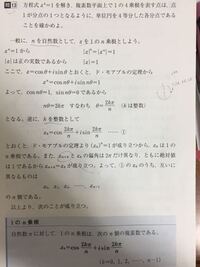 問13 方程式 z⁴=1 を解き、複素数平面上で1の4乗根を表す点は、点
1が分点の1つとなるように、単位円を4等分した各分点である
ことを確かめよ。
一般に、nを自然数として、zを1のn乗根としよう。
zⁿ=1 から |z|ⁿ=|zⁿ|=1
|z|は正の実数であるから |z|=1
ここで、z=cosθ+i sinθ とおくと、ド・モアブルの定理から
zⁿ=cos nθ+i sin nθ=1
よって、cos nθ=1、sin nθ=0 であるから
nθ=2kπ すなわち θ=2kπ/n (kは整数)
となる。逆に、kを整数として
zₖ=cos 2kπ/n +i sin 2kπ/n ……①
とおくと、ド・モアブルの定理より (zₖ)ⁿ=1 が成り立つから、zₖは1の
n乗根である。また、
の偏角は2πだけ異なり、ともに絶対値
は1であるから
が成り立つ。よって、①のzₖのうち、互いに異
なるものは
z₀, z₁, z₂, ……, zₙ₋₁
のn個である。
以上より、次のことが成り立つ。
1のn乗根
自然数nに対して、1のn乗根は、次のn個の複素数である。
zₖ=cos 2kπ/n +i sin 2kπ/n
(k=0, 1, 2, ……, n-1)